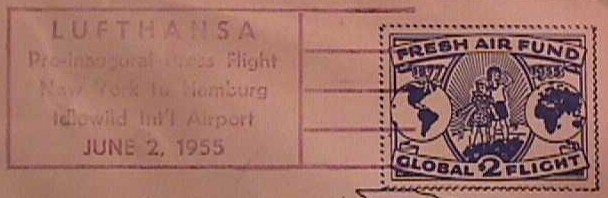 LUFTHANSA
Pre-Inaugural Press Flight
New York to Hamburg
Idlewild Int'l Airport
JUNE 2, 1955
FRESH AIR FUND
1877 1955
GLOBAL 2 FLIGHT